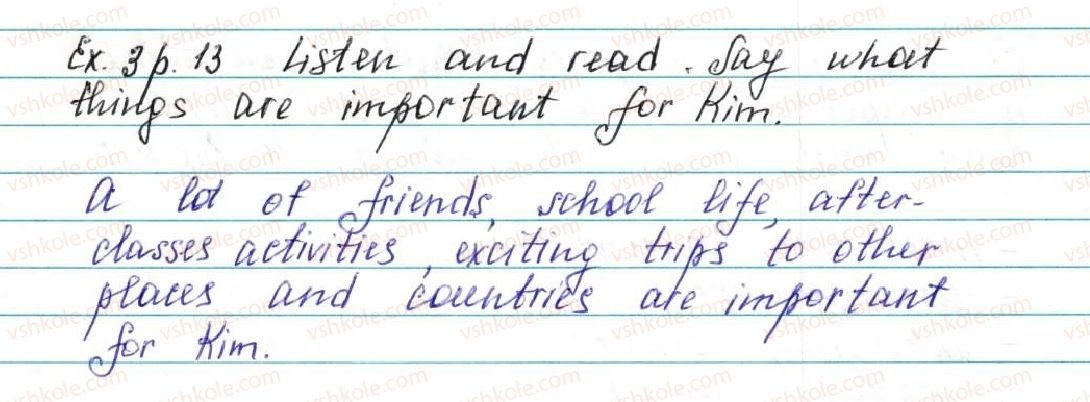 Ex. 3 p. 13 Listen and read. Say what
things are important for Kim.
A lot of friends, school life, after-
classes activities, exciting trips to other
places and countries are important
for Kim.